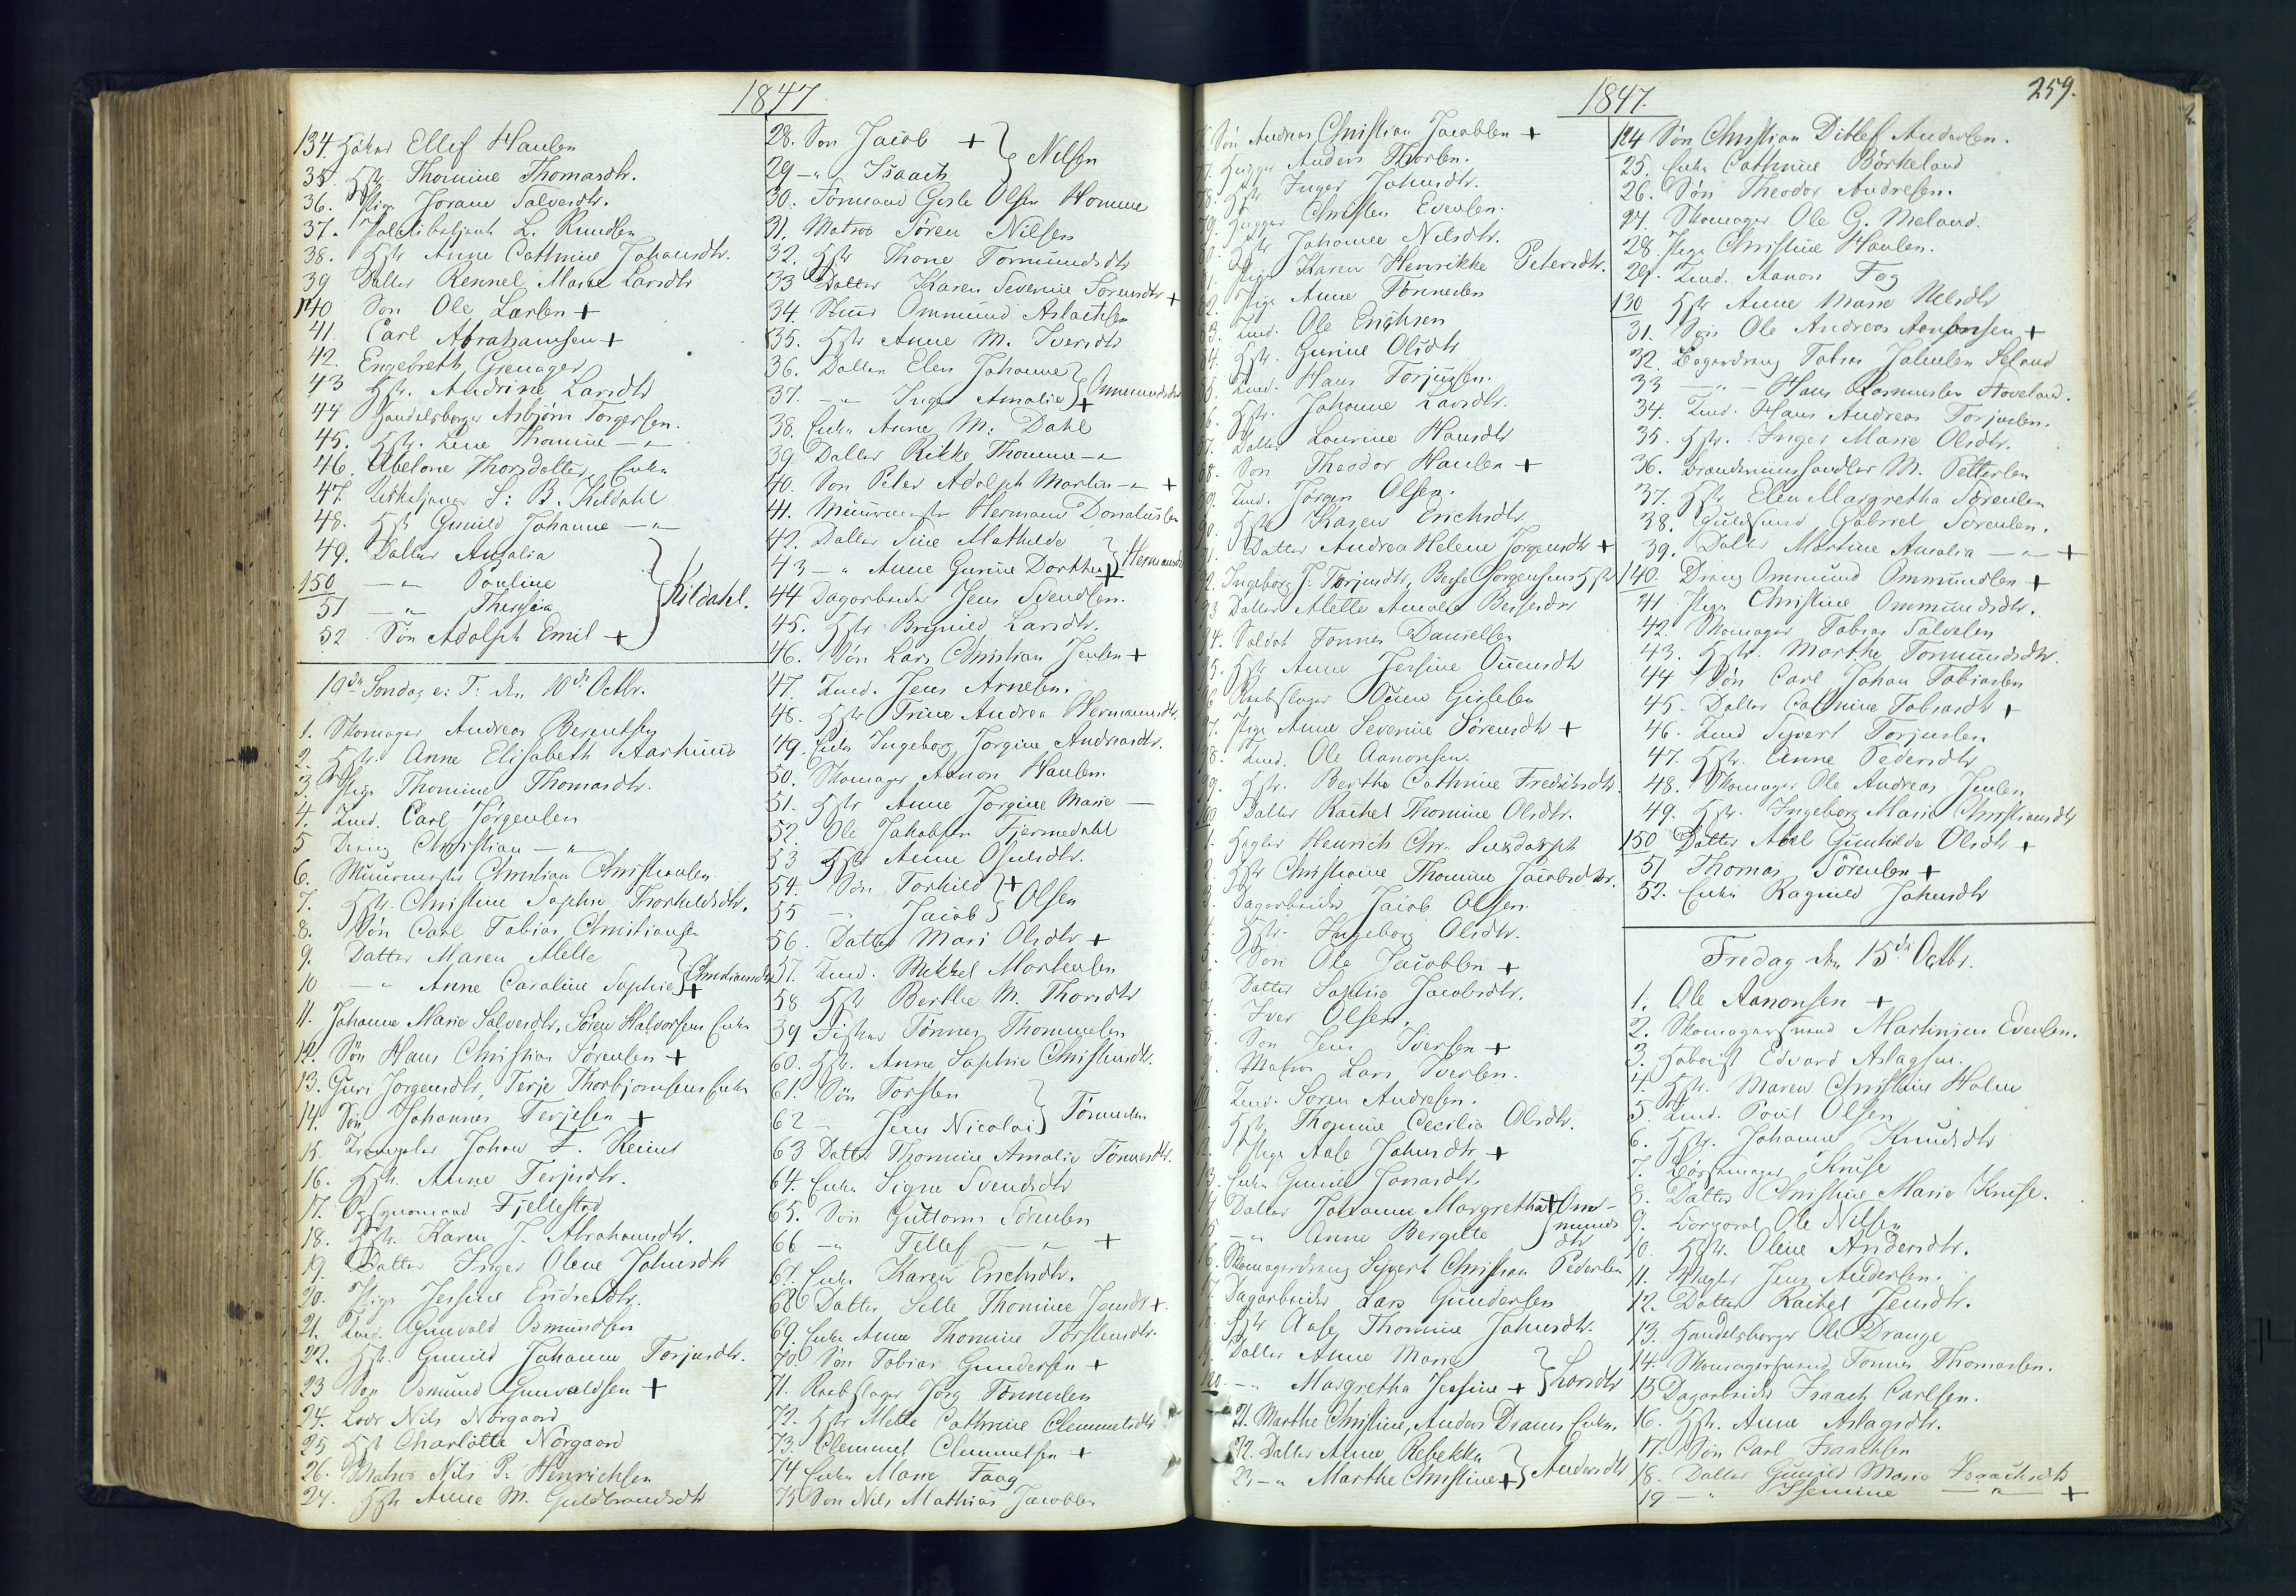 1847
134. Høker Ellef Hansen
35. Hstr Thomine Thomasdtr.
36. Pige Jorane Salvesdtr.
37. Politibetjent L. Knudsen
38. Hstr Anne Cathrine Johansdtr.
39 Datter Rennel Marie Larsdtr
140 Søn Ole Larsen +
41. Carl Abrahamsen +
42. Engebreth Grenager
43 Hstr. Andrine Larsdtr
44 Handelsborger Asbjørn Torgersen.
45. Hstr. Lene Thomine — " —
46. Abelone Thorsdatter, Enke
47. S: B: Kildahl
48. Hstr Gunild Johanne — " —
49. Datter Amalia
150 — " — Pouline
51 — " — Theresia
52 Søn Adolph Emil + } Kildahl.
19de Søndag e: T: den 10de Octbr.
1. Skomager Andreas Berentsen
2. Hstr. Anne Elisabeth Aarhuus
3. Pige Thomine Thomasdtr.
4. Ind. Carl Jørgensen
5 Dreng Christian — " —
6. Muurmester Christian Christiansen
7. Hstr. Christine Sophie Thorkildsdtr.
8. Søn Carl Tobias Christiansen
9. Datter Maren Mette
10 — " Anne Caroline Sophie + } Christiansdtr
11. Johanne Marie Salvesdtr, Søren Halvorsens Enke
12. Søn Hans Christian Sørensen +
13. Guri Jørgensdtr, Terje Thorbjørnsens Enke
14. Søn Johannes Terjesen +
15. Johan F. Reimers
16. Hstr. Anne Terjesdtr.
17. Fjellestad
18. Hstr. Karen J. Abrahamsdtr.
19. Datter Inger Olene Johnsdtr
20. Pige Jessine Endresdtr.
21. Ind. Gunvald Osmundsen
22. Hstr. Gunild Johanne Torjusdtr.
23 Søn Osmund Gunvaldsen +
24. Lods Nils Nørgaard
25 Hst Charlotte Nørgaard
26. Matros Nils P. Henrichsen
27. Hstr Anne M. Guldbrandsdtr
28. Søn Jacob +
29 — " Isaach } Nilsen
30. Formand Gisle Olsen Homme
31. Matros Søren Nilsen
32. Hstr Thone Tormundsdtr
33 Datter Karen Severine Sørensdtr +
34. Ommund Aslachsen
35. Hstr Anne M. Iversdtr
36. Datter Elen Johanne
37. — " Inger Amalie + } Ommundsdtr
38. Enke Anne M: Dahl
39 Datter Rikke Thomine — " —
40. Søn Peter Adolph Martin — " — +
41. Muurmester Hermand Donatiussen
42. Datter Sine Mathilde
43 — " Anne Gurine Dorthea + } Hermansdtr
44 Dagarbeider Jens Svendsen.
45. Hstr Brynild Larsdtr.
46. Søn Lars Christian Jensen +
47. Ind. Jens Arnesen.
48. Hstr Trine Andrea Hermansdtr.
49. Enke Ingeborg Jørgine Andreasdtr.
50. Skomager Aanon Hansen
51. Hstr Anne Jørgine Marie —
52. Ole Jakobsen Fjermedahl
53 Hstr Anne Olsdtr.
54. Søn Torkild +
55 — " Jacob } Olsen
56. Datter Mari Olsdtr +
57. Ind. Mikkel Mortensen
58 Hstr Berthe M. Thorsdtr
59 Fisker Tønnes Thommesen
60. Hstr. Anne Sophie Christensdtr.
61. Søn Torsten
62 — Jens Nicolai } Tønnesen
63 Datter Thomine Amalie Tønnesdtr.
64. Enke Signe Svendsdtr
65. Søn Guttorm Sørensen
66 — " Tellef — " — +
67. Enke Karen Erichsdtr.
68 Datter Sille Thomine Jensdtr +.
69. Enke Anne Thomine Torstensdtr.
70. Søn Tobias Gundersen +
71. Reebslager Jørg. Tønnesen
72. Hstr Mette Cathrine Clemmetsdtr
73. Clemmet Clemmetsen +
74 Enke Marie Faag
75 Søn Nils Mathias Jacobsen
1847.
259.
76 Søn Andreas Christian Jacobsen +
77. Anders Thorsen.
78. Hstr Inger Johnsdtr.
79. Christen Evensen.
80. Hstr Johanne Nilsdtr.
81. Pige Karen Henrikke Petersdtr.
82. Pige Anne Tønnesen
83. Ind. Ole Erichsen
84. Hstr. Gurine Olsdtr
85. Ind. Hans Torjussen.
86. Hstr. Johanne Larsdtr.
87. Datter Laurine Hansdtr
88. Søn Theodor Hansen +
89. Ind. Jørgen Olsen.
90. Hstr Karen Erichsdtr
91. Datter Andrea Helene Jørgensdtr +
92. Ingeborg J. Torjusdtr, Berje Jørgensens Hstr
93 Datter Mette Amalie Berjesdtr
94. Soldat Tønnes Danielsen
95. Hstr Anne Jessine Ouensdtr
96 Reebslager Ouen Gislesen
97. Pige Anne Severine Sørensdtr +
98. Ind. Ole Aanonsen.
99. Hstr. Berthe Cathrine Fredriksdtr.
100 Datter Rachel Thomine Olsdtr.
1. Henrich Chr. Luxdorph
2. Hstr Christiane Thomine Jacobsdtr.
3. Dagarbeider Jacob Olsen
4. Hstr. Ingeborg Olsdtr.
5. Søn Ole Jacobsen +
6. Datter Sophie Jacobsdtr.
7. Iver Olsen.
8. Søn Jens Iversen +
9. Matros Lars Iversen.
10 Ind. Søren Andresen.
11. Hstr. Thomine Cecilia Olsdtr.
12. Pige Aase Johnsdtr +
13. Enke Gunild Jonasdtr.
14 Datter Johanne Margretha +
15 — " Anne Bergitte } Ommundsdtr
16. Skomagerdreng Sivert Christian Pedersen
17. Dagarbeider Lars Gundersen
18. Hstr Aase Thomine Johnsdtr.
19. Datter Anne Marie
120 — " Margretha Jessine + } Larsdtr
21. Marthe Christine, Anders Dranes Enke.
22. Datter Anne Rebekka
23 — " Marthe Christine + } Andersdtr
124 Søn Christian Ditlef Andersen.
25. Enke Cathrine Børkeland
26. Søn Theodor Andresen.
27. Skomager Ole G. Meland.
28. Pige Christine Hansen.
29. Ind. Aanon Fog
130 Hstr Anne Marie Nilsdtr
31. Søn Ole Andreas Aanonsen +
32. Bagerdreng Tobias Johnsen Seland
33 — " — Hans Rasmussen Hoveland.
34. Ind. Hans Andreas Torjussen.
35. Hstr. Inger Marie Olsdtr.
36. Brændeviinshandler M. Pettersen
37. Hstr Elen Margretha Sørensen
38. Guldsmed Gabriel Sørensen.
39. Datter Martine Amalia — " — +
140. Dreng Ommund Ommundsen +
41 Pige Christine Ommundsdtr.
42. Skomager Tobias Salvesen
43. Hstr. Marthe Tormundsdtr.
44 Søn Carl Johan Tobiassen
45. Datter Cathrine Tobiasdtr +
46. Ind Sivert Torjussen
47. Hstr. Anne Pedersdtr
48. Skomager Ole Andreas Jensen
49. Hstr. Ingeborg Marie Christiansdtr
150 Datter Abel Gunhilde Olsdtr +
51 Thomas Sørensen +
52. Enke Ragnild Johnsdtr
Fredag den 15de Octbr.
1. Ole Aanonsen +
2. Skomagersvend Martinius Evensen.
3. Hoboist Edvard Aslagsen.
4. Hstr. Maren Christine Holm
5. Ind. Poul Olsen
6. Hstr. Johanne Knudsdtr
7. Børstmager Kruse
8. Datter Christine Marie Kruse.
9. Corporal Ole Nilsen
10. Hstr. Olene Andersdtr.
11. Jens Andersen.
12. Datter Rachel Jensdtr.
13. Handelsborger Ole Drange
14. Skomagersvend Tønnes Thomassen.
15 Dagarbeider Isaach Carlsen.
16. Hstr. Anne Aslagsdtr.
17. Søn Carl Isaachsen
18. Datter Gunild Marie Isaachsdtr
19 — " — — " — +